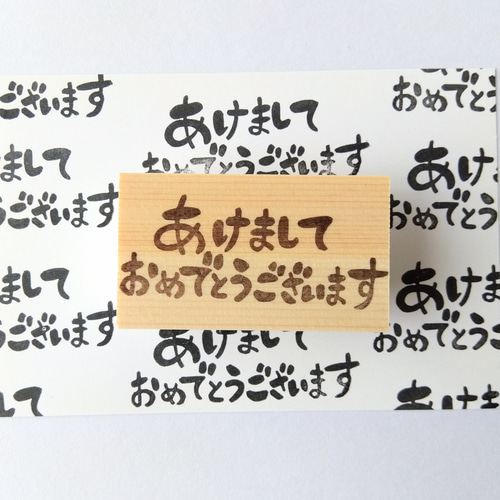 ございます
あけまして
おめでとうございます
おめでとう
あけまして
ございます
あけまして
おめでとうございます
あけまして
おめでとう
あけまして
ございます
あけまして
おめでとうございます
あけまして
おめでとう
して
あけま